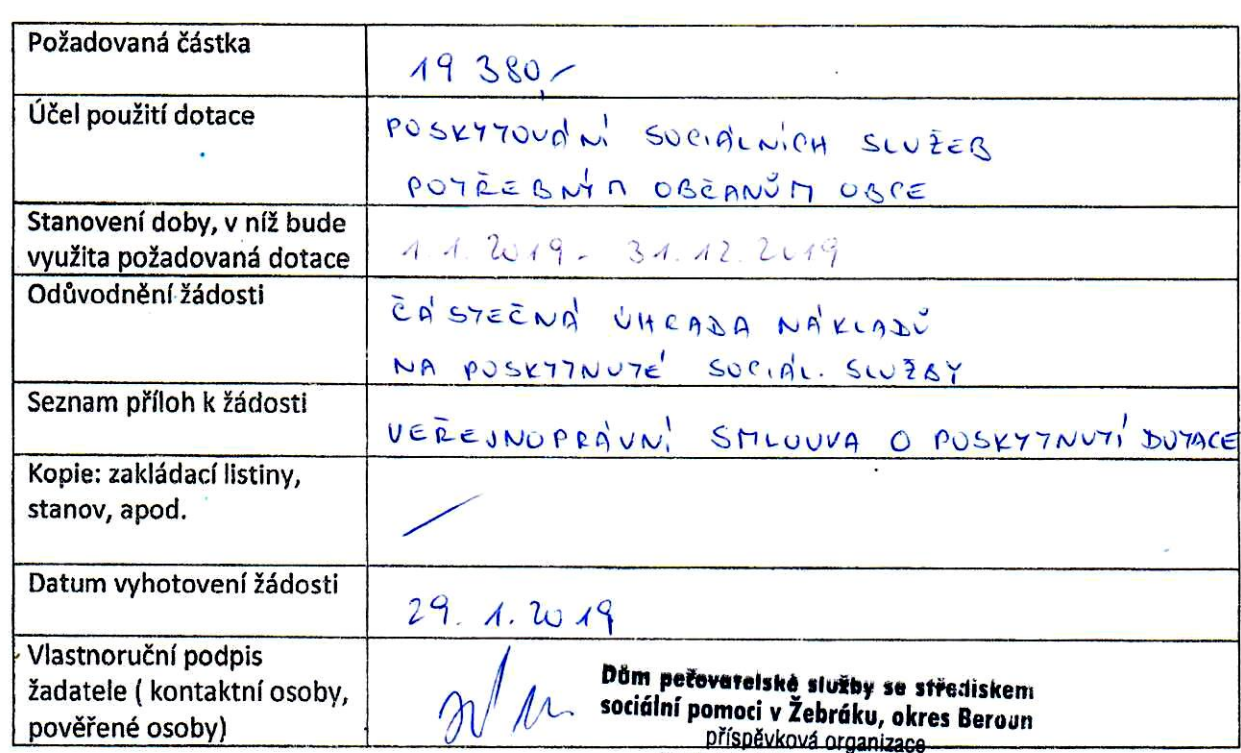 Požadovaná částka
19 380,-
Účel použití dotace
POSKYTOVÁNÍ SOCIÁLNÍCH SLUŽEB
POTŘEBNÝM OBČANŮM OBCE
Stanovení doby, v níž bude
využita požadovaná dotace
1.1.2019 - 31.12.2019
Odůvodnění žádosti
ČÁSTEČNÁ ÚHRADA NÁKLADŮ
NA POSKYTNUTÉ SOCIÁL. SLUŽBY
Seznam příloh k žádosti
VEŘEJNOPRÁVNÍ SMLOUVA O POSKYTNUTÍ DOTACE
Kopie: zakládací listiny,
stanov, apod.
Datum vyhotovení žádosti
29. 1. 2019
Vlastnoruční podpis
žadatele ( kontaktní osoby,
pověřené osoby)
Dům pečovatelské služby se střediskem
sociální pomoci v Žebráku, okres Beroun
příspěvková organizace